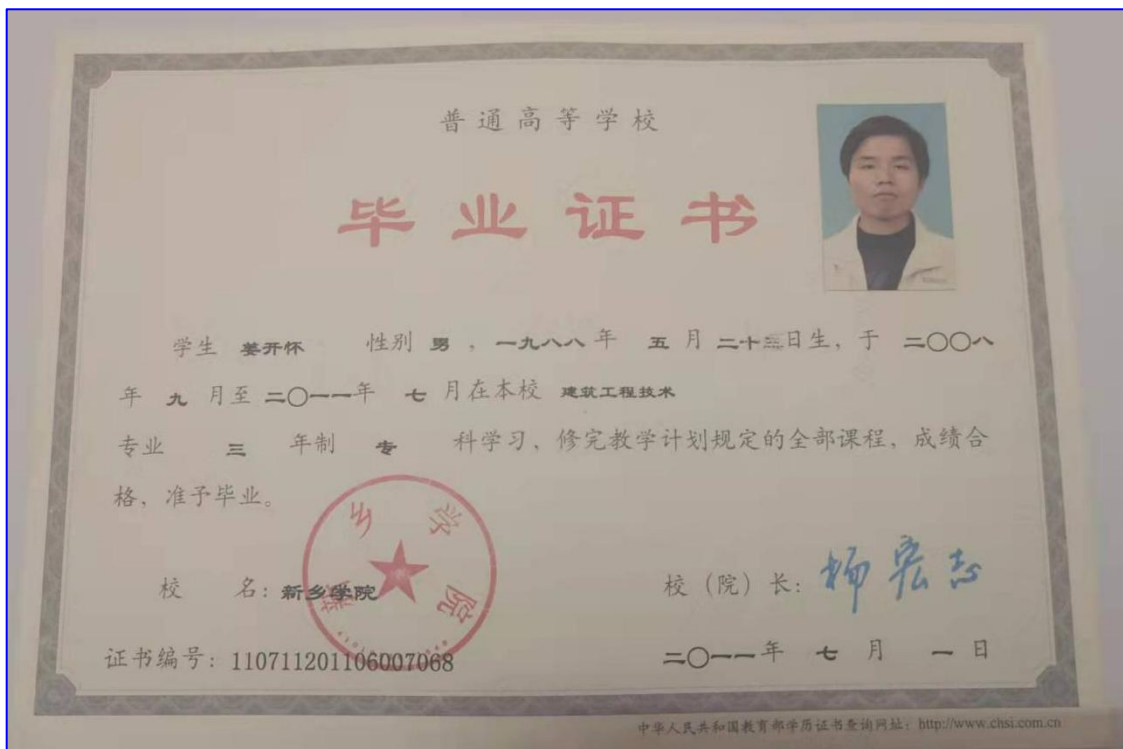 普通高等学校
毕业证书
学生 姜开怀 性别 男 ，一九八八 年 五 月 二十三日生，于 二〇〇八
年 九 月至 二〇一一年 七 月在本校 建筑工程技术
专业 三 年制 专 科学习，修完教学计划规定的全部课程，成绩合
格，准予毕业。
新乡学院
校 名：新乡学院
校（院）长：杨宏志
证书编号：110711201106007068
二〇一一年 七 月 一 日
中华人民共和国教育部学历证书查询网址：http://www.chsi.com.cn